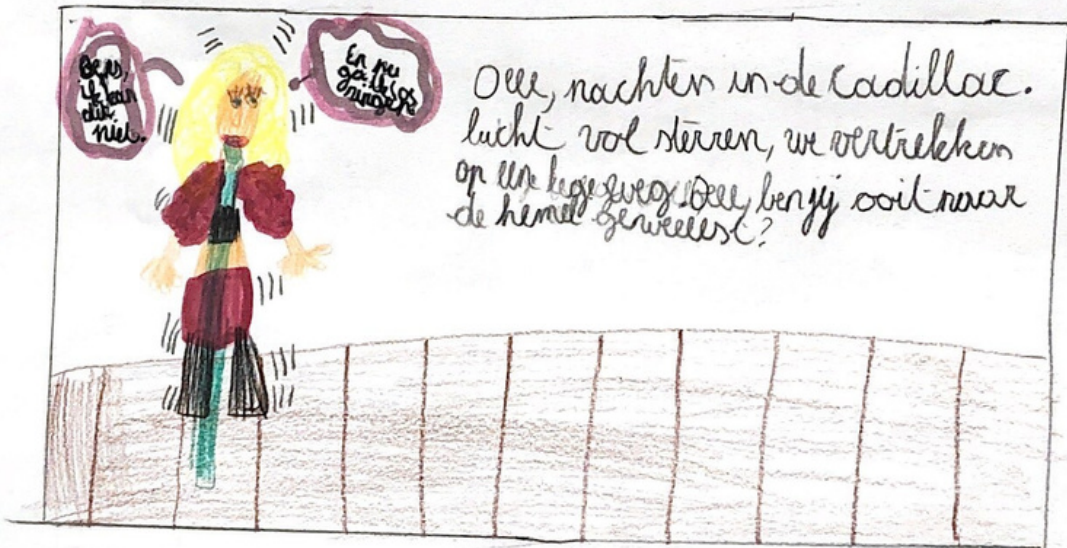 ik kan
dit
niet.
En nu
ga ik
Oee, nachten in de Cadillac.
lucht vol sterren, we vertrekken
op een lege weg. Oee, ben jij ooit naar
de hemel geweeest?